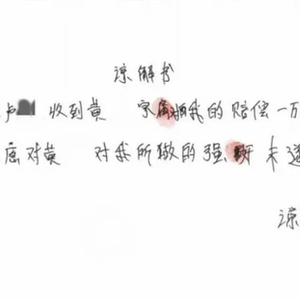 谅解书
卢 收到黄 家属 我的赔偿一万
底对黄 对我所做的强奸未遂
谅